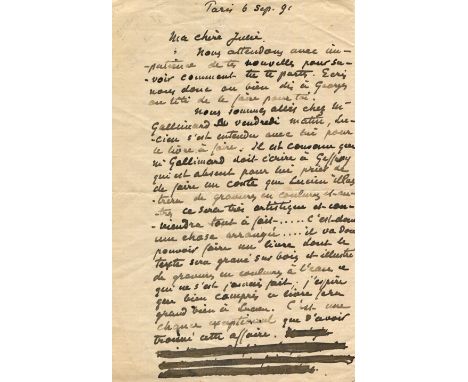 Paris 6 Sep. 91
Ma chère Julie.
Nous attendons avec im-
-patience de tes nouvelles pour sa-
-voir comment tu te portes. Ecris
nous donc ou bien dis à Georges
ou titi de le faire pour toi.
Nous sommes allés chez M.
Gallimard vendredi matin, Lu-
cien s'est entendu avec lui pour
le livre à faire. Il est convenu que
M. Gallimard doit écrire à Geffroy
qui est absent pour lui prier de
de faire un conte que Lucien illus-
trera de gravures en couleurs et au-
tres ce sera très artistique et con-
viendra tout à fait..... C'est donc
une chose arrangée.... il va donc
pouvoir faire un livre dont le
texte sera gravé sur bois et illustré
de gravures en couleurs à l'eau ce
qui ne s'est jamais fait. j'espère
que bien compris ce livre fera
grand bien à Lucien. C'est une
chance que d'avoir
trouvé cette affaire.